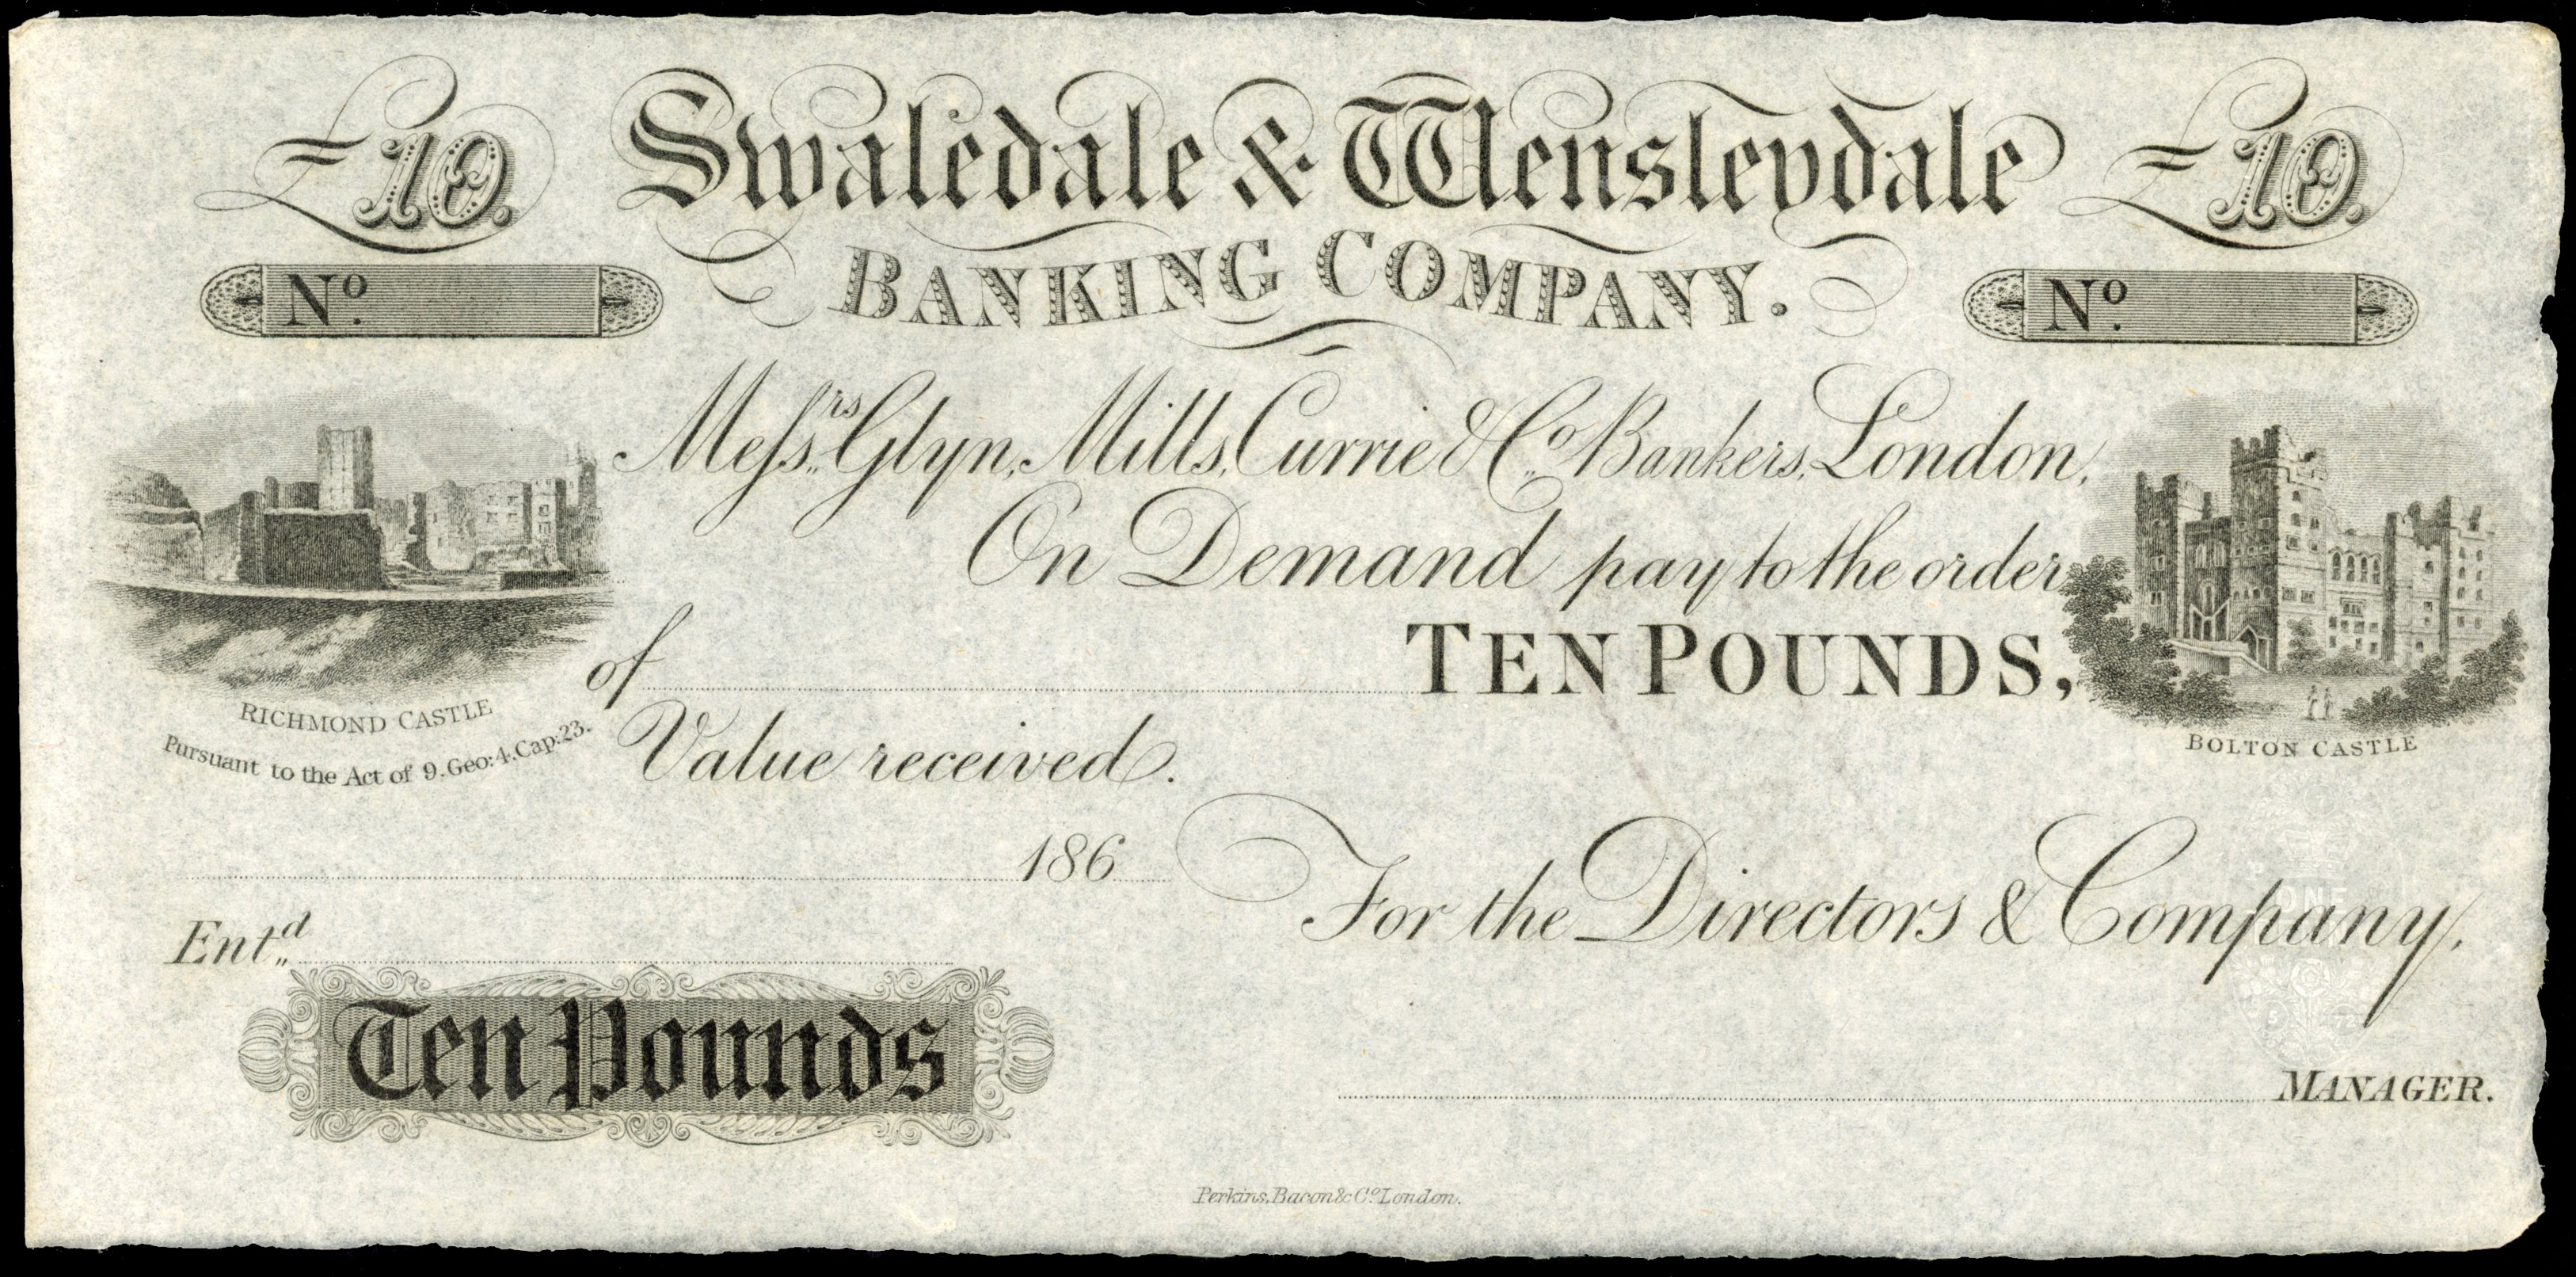 £10. Swaledale & Wensleydale £10.
BANKING COMPANY.
No. No.
Messrs. Glyn, Mills, Currie & Co. Bankers, London,
On Demand pay to the order
of TEN POUNDS,
Value received.
RICHMOND CASTLE
Pursuant to the Act of 9.Geo:4.Cap:23.
BOLTON CASTLE
186
For the Directors & Company,
Entd.
Ten Pounds
MANAGER.
Perkins, Bacon & Co. London.
ONE